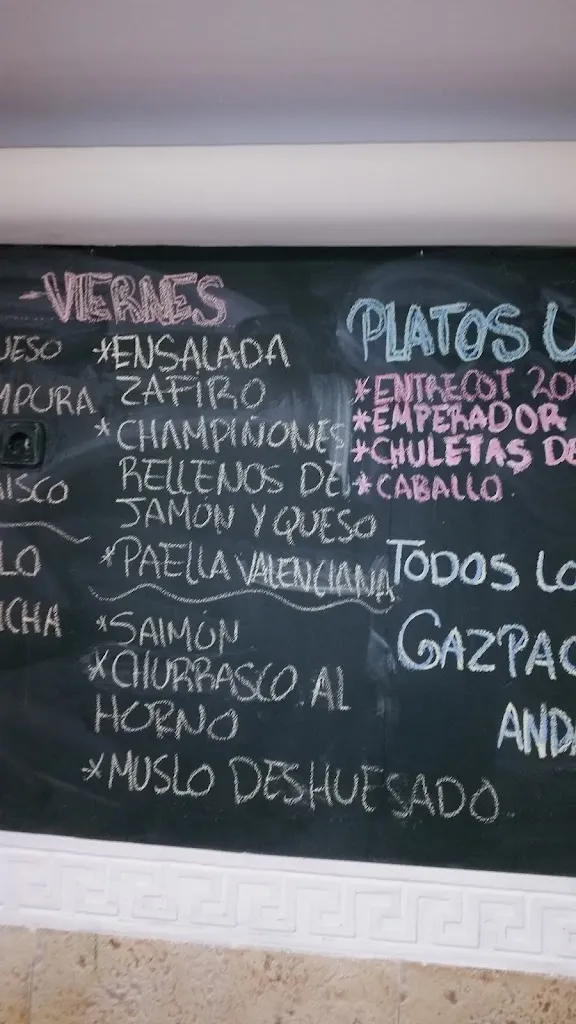 -VIERNES
UESO
MPURA
AISCO
LO
ICHA
*ENSALADA
ZAFIRO
*CHAMPIÑONES
RELLENOS DE
JAMÓN Y QUESO
*PAELLA VALENCIANA
*SALMÓN
*CHURRASCO AL
HORNO
*MUSLO DESHUESADO.
PLATOS U
*ENTRECOT 200
*EMPERADOR
*CHULETAS DE
*CABALLO
TODOS LO
GAZPAC
ANDA